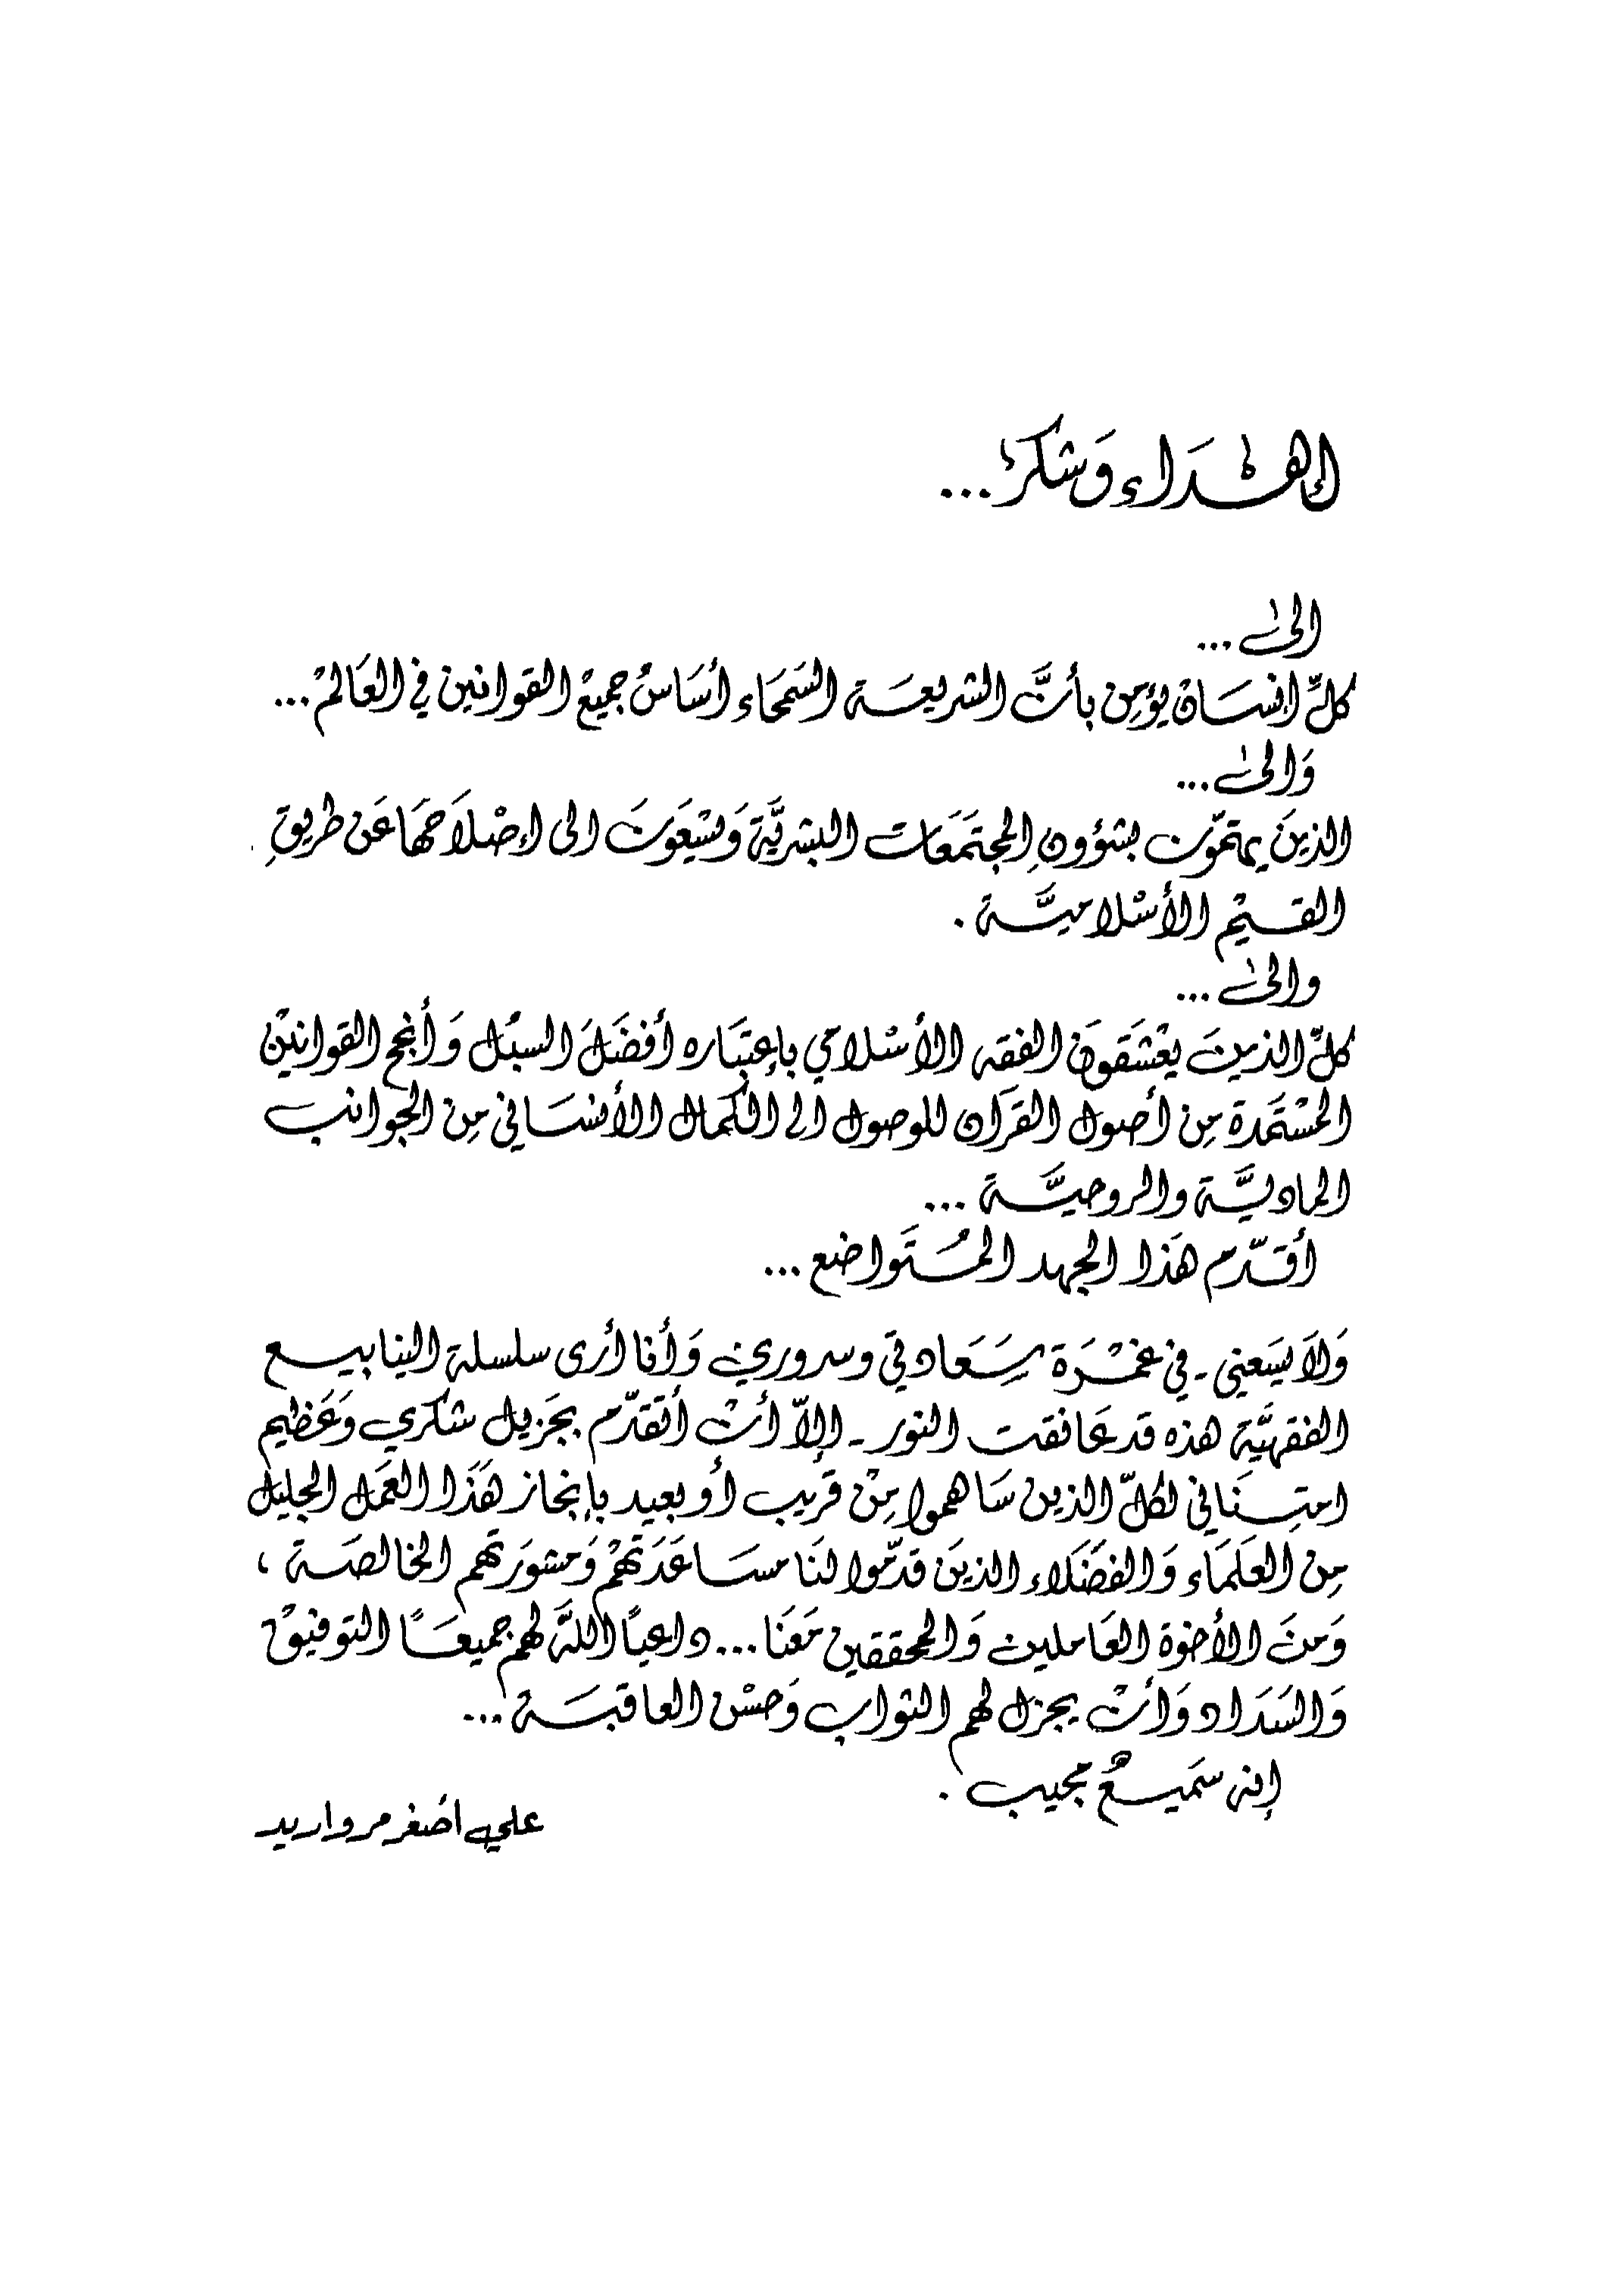 إهْداء وَشكر...
الىٰ...
كلّ إنسَان يؤمِن بأنَّ الشريعَة السَمحَاء أسَاسُ جميْع القوانين في العَالمْ...
وَالىٰ...
الذينَ يهتمّون بشؤونِ المجتَمَعَات البشريَّة وَيسْعَونَ الى إصْلاَحهَا عَن طريقِ
القيمْ الأسْلاميَّة.
والىٰ...
كلّ الذينَ يعْشَقونَ الفقه الأسْلامي بإعتبَاره أفضَلَ السبُل وَأنجح القوانيْن
المسْتَمدة مِن أصول القرآن للوصول الى الكمال الأنسَاني مِن الجوانب
الماديَّة والروحيَّة...
أقدّم هَذا الجهد المُتَواضع...
وَلاَ يسَعني - في غمْرَة سَعَادتي وسروري وَأنا أرى سلسلة الينابيع
الفقهيَّة هذه قد عَانقت النور - إلاّ أنْ أتقدّم بجَزيل شكري وَعَظيم
امتِنَاني لكلّ الذين سَاهموا مِنْ قريب أو بعيد بإنجاز هَذَا العَمل الجليل
مِن العلَمَاء وَالفضَلاء الذينَ قدّموا لنَا مسَاعَدَتهُمْ وَمشورَتهم الخالصَة،
وَمنَ الأخوة العَاملين وَالمحققين مَعَنا... داعياً اللَّهَ لهم جميعَاً التوفيقْ
وَالسَدَاد وَأنْ يجزل لهم الثواب وَحسْن العاقبَة...
إنه سَميعٌ مجيب.
علي اصَغر مرواريد